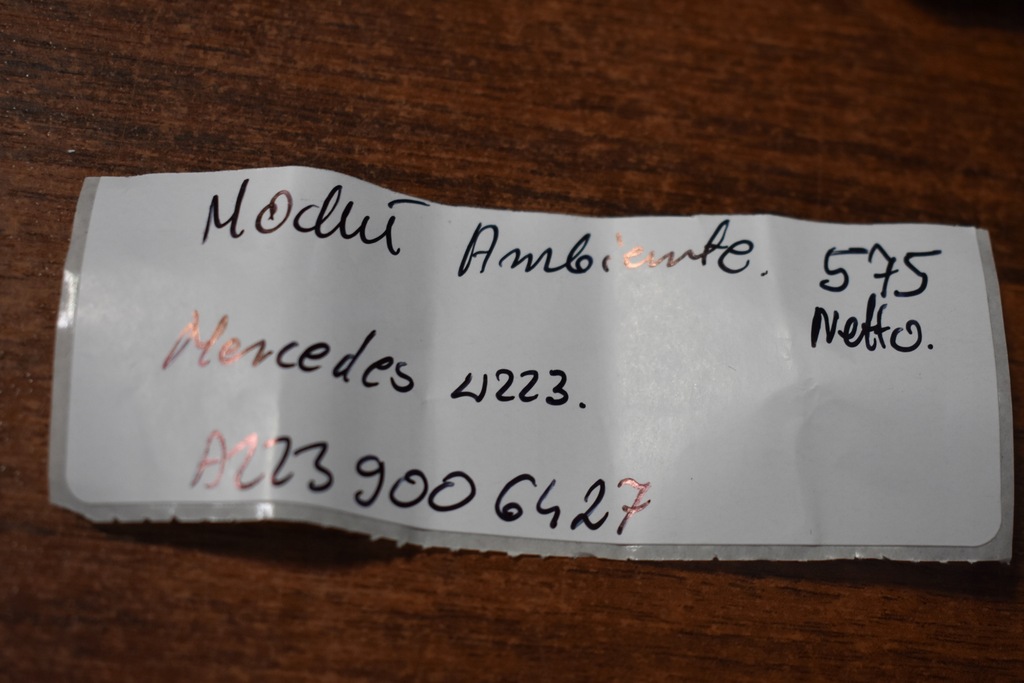 Moduł Ambiente. 575
Netto.
Mercedes W223.
A223 900 6427